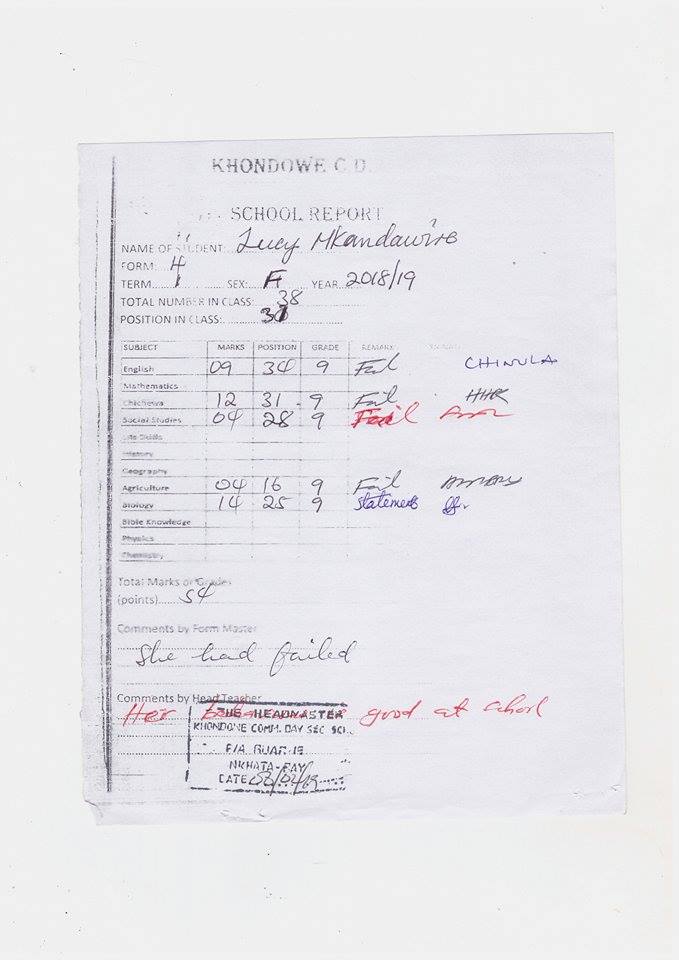 KHONDOWE C.D.
SCHOOL REPORT
NAME OF STUDENT: Lucy Mkandawire
FORM: 4
TERM 1 SEX: F YEAR 2018/19
TOTAL NUMBER IN CLASS: 38
POSITION IN CLASS: 31
SUBJECT MARKS POSITION GRADE REMARK
English 09 34 9 Fail CHINULA
Mathematics
Chichewa 12 31 9 Fail
Social Studies 04 28 9 Fail
Life Skills
History
Geography
Agriculture 04 16 9 Fail
Biology 14 25 9 Statements
Bible Knowledge
Physics
Chemistry
Total Marks or Grades
(points) 54
Comments by Form Master
She had failed
Comments by Head Teacher
Her good at school
THE HEADMASTER
KHONDOWE COMM. DAY SEC SCH.
P/A RUARWE
NKHATA-BAY
DATE